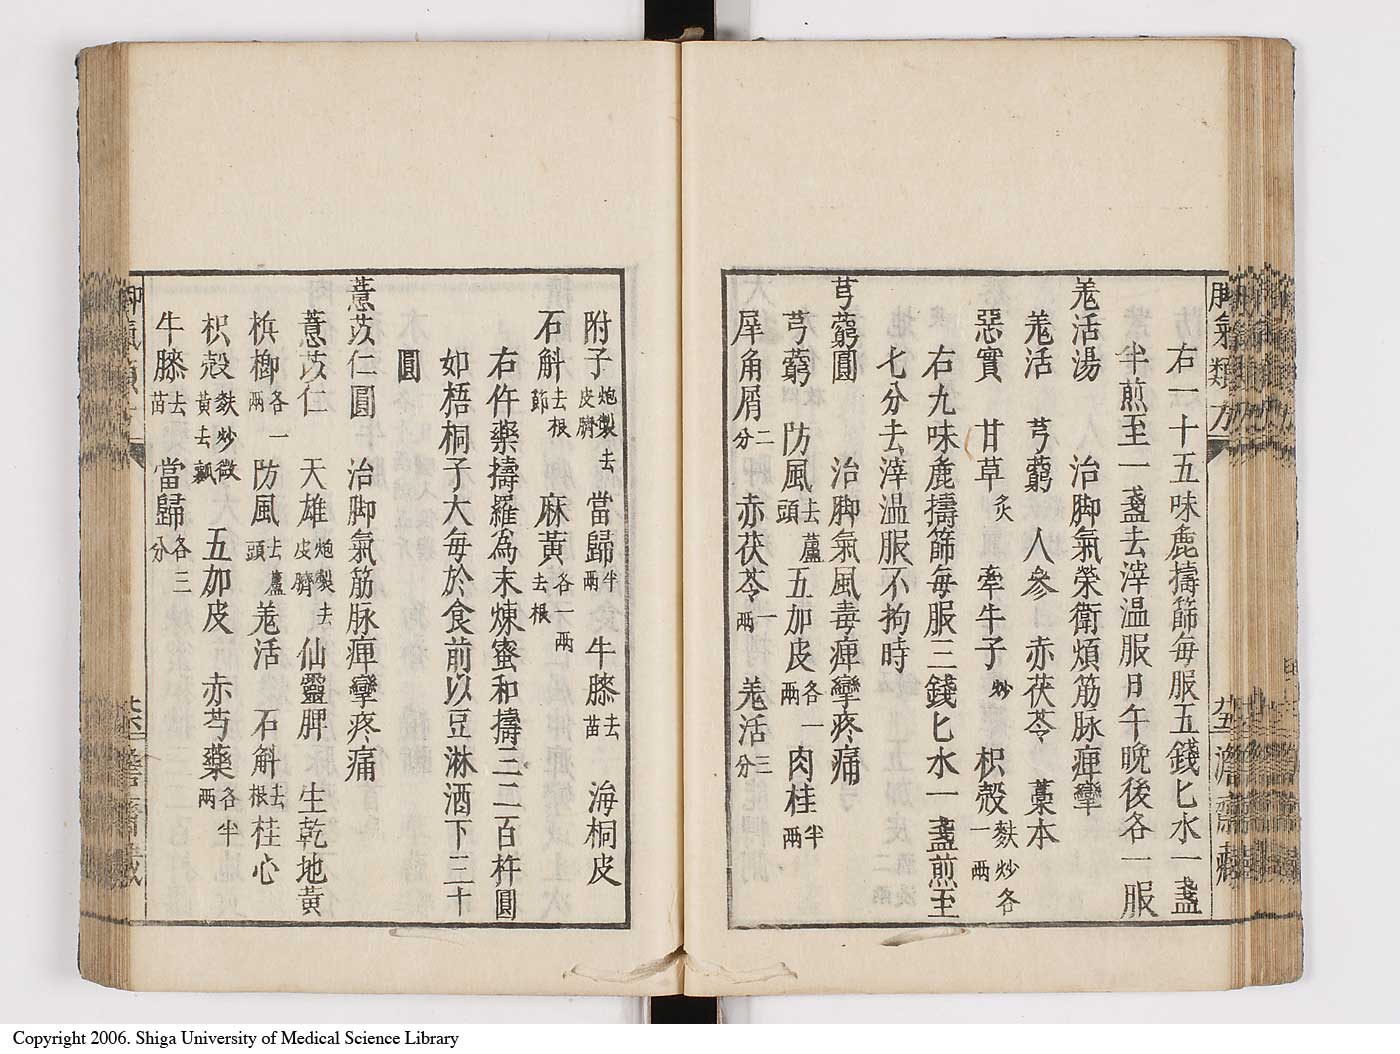 脚氣類方
右一十五味麁擣篩每服五錢匕水一盞
半煎至一盞去滓温服日午晚後各一服
羗活湯　治脚氣榮衛煩筋脉痺攣
羗活　芎藭　人參　赤茯苓　藁本
惡實　甘草炙　牽牛子炒　枳殼麩炒各一兩
右九味麁擣篩每服三錢匕水一盞煎至
七分去滓温服不拘時
芎藭圓　治脚氣風毒痺攣疼痛
芎藭　防風去蘆頭　五加皮各一兩　肉桂半兩
犀角屑二分　赤茯苓一兩　羗活三分
附子炮製去皮臍　當歸半兩　牛膝去苗　海桐皮
石斛去根節　麻黃去根各一兩
右件藥擣羅為末煉蜜和擣三二百杵圓
如梧桐子大每於食前以豆淋酒下三十
圓
薏苡仁圓　治脚氣筋脉痺攣疼痛
薏苡仁　天雄炮製去皮臍　仙靈脾　生乾地黃
檳榔各一兩　防風去蘆頭　羗活　石斛去根　桂心
枳殼麩炒微黃去瓤　五加皮　赤芍藥各半兩
牛膝去苗　當歸各三分
Copyright 2006. Shiga University of Medical Science Library